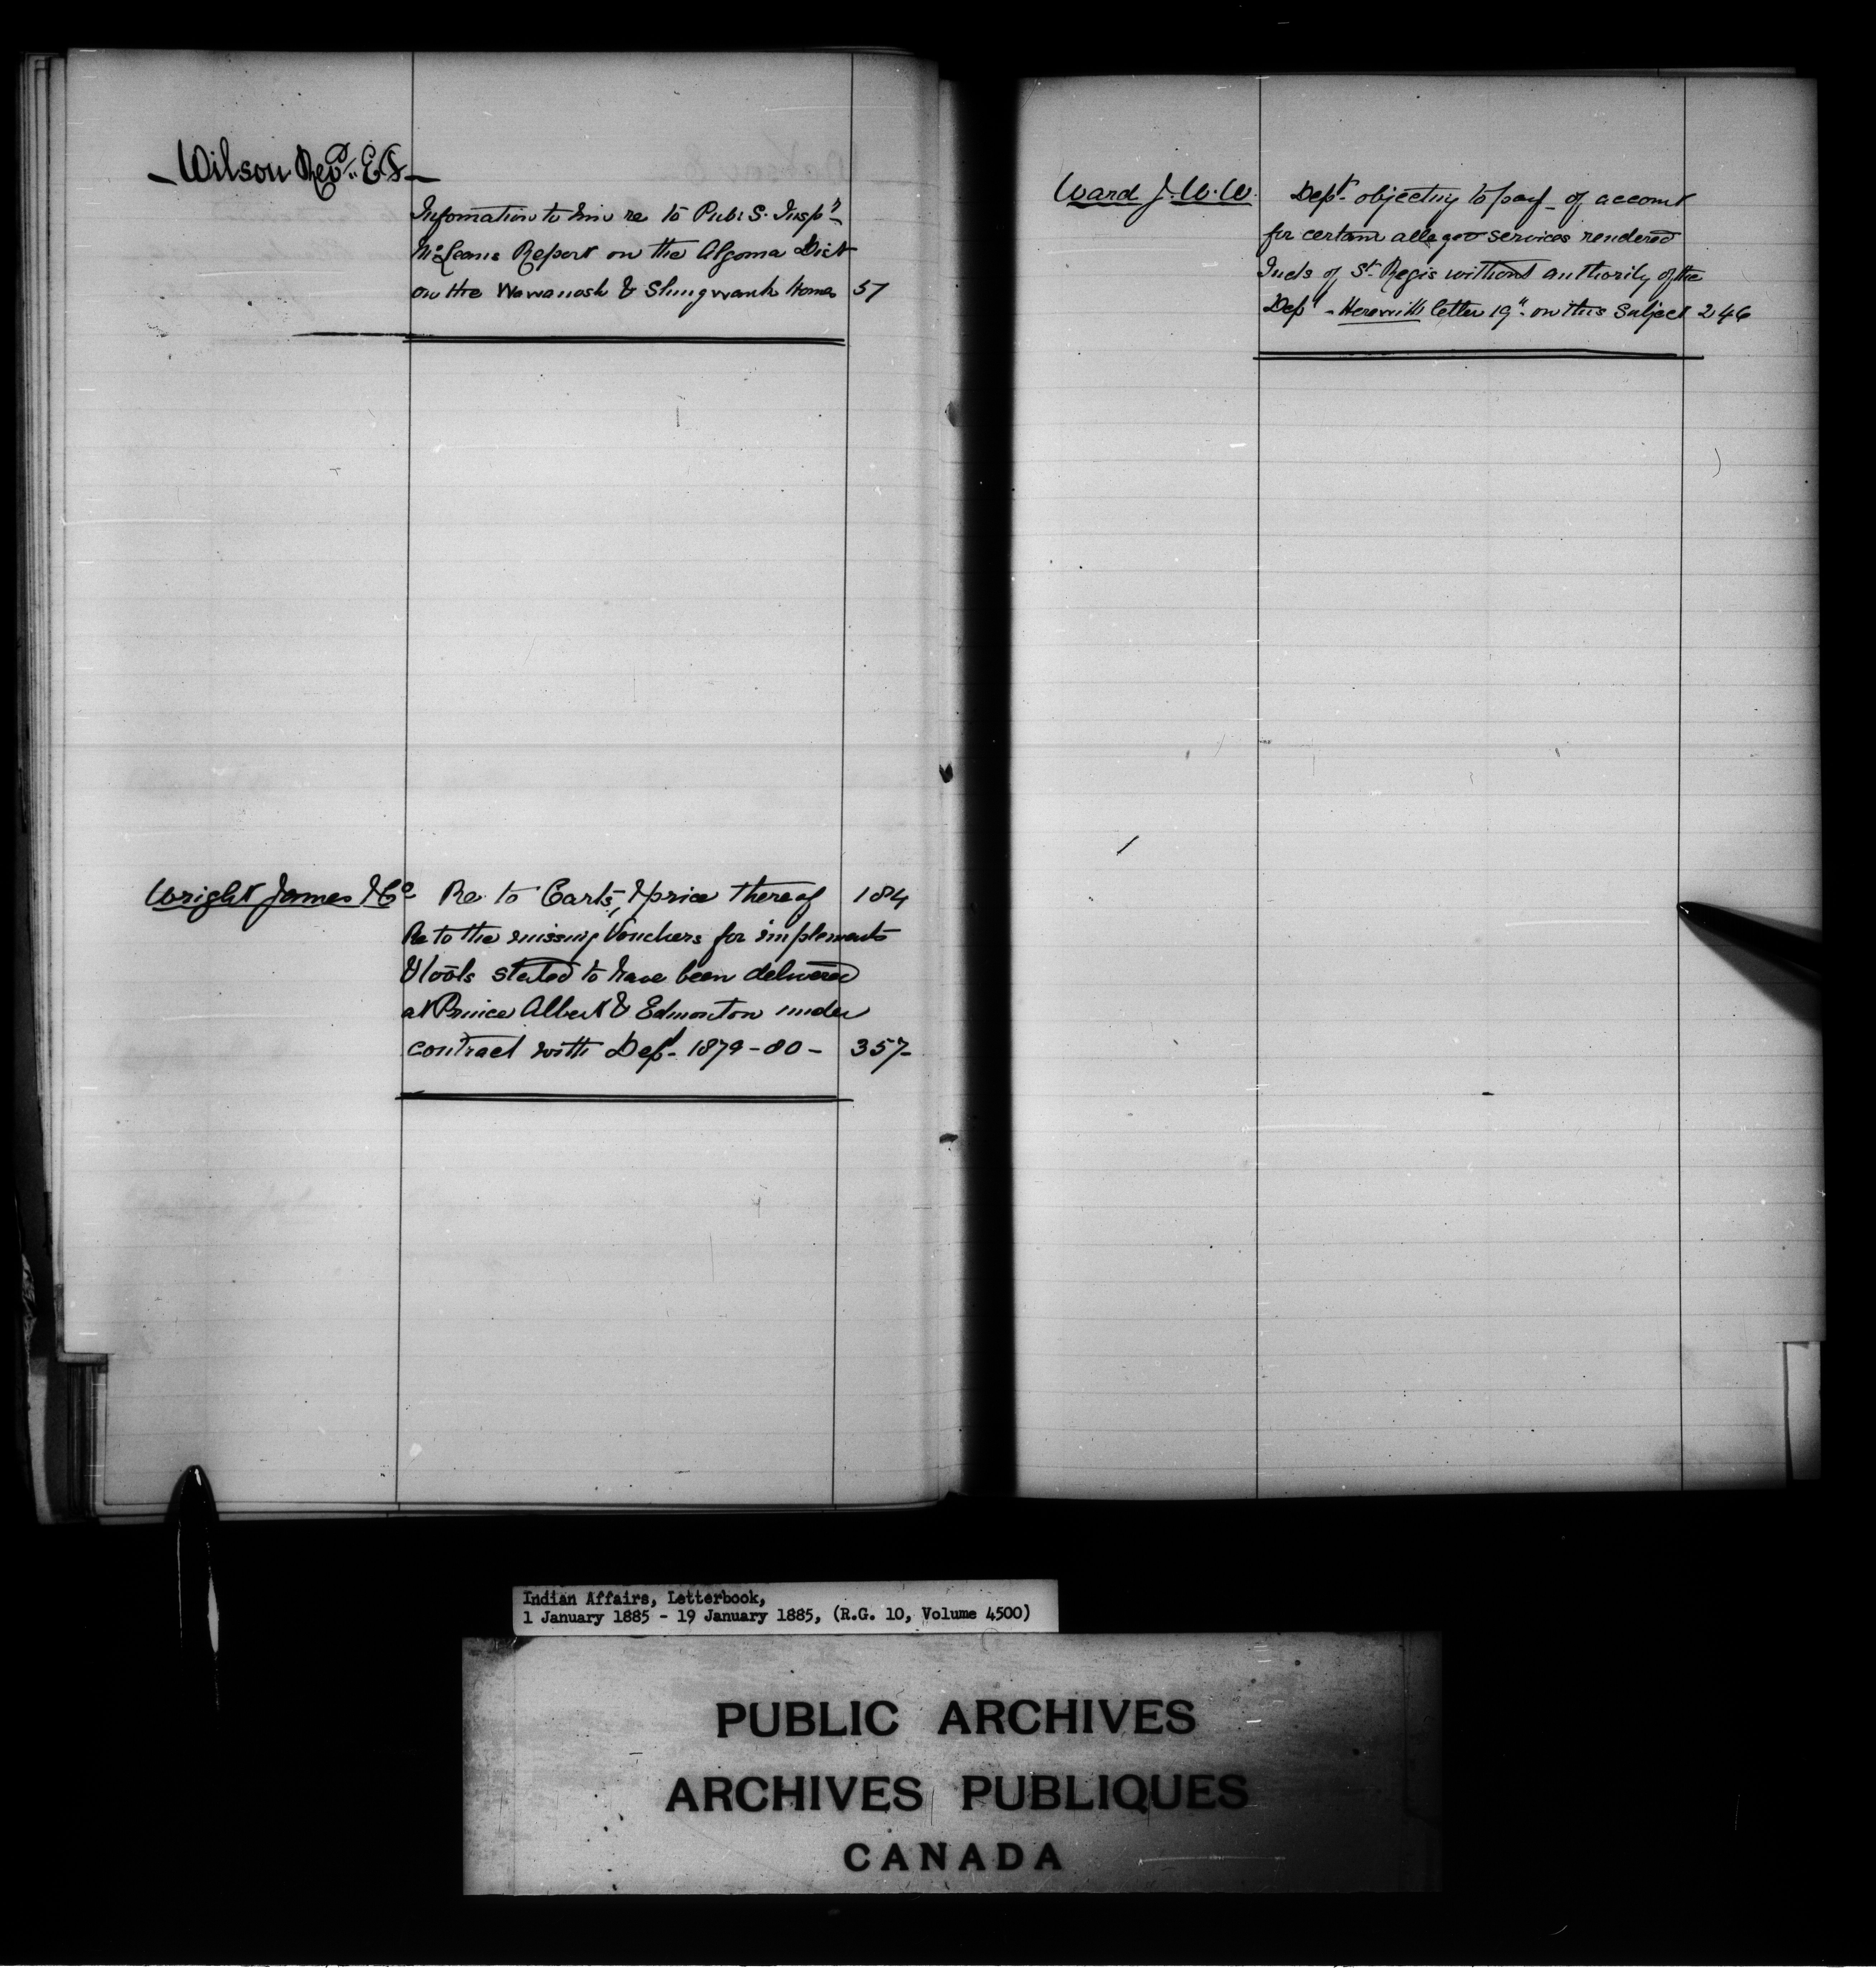 Wilson Revd. E.F.
Infomation to him re to Publ S. Inspr
McLeans Report on the Algoma Dist
on the Wawanosh & Shingwauk Homes 57
Wright James & Co Re to Carts, & price thereof 184
Re to the missing Vouchers for implements
& tools stated to have been delivered
at Prince Albert & Edmonton under
contract with Dept. 1879-80- 357-
Ward J. W. W. Dept. objecting to pay- of account
for certain alleged services rendered
Inds of St. Regis without authority of the
Dept - Herewith letter 19" on this Subject 246
Indian Affairs, Letterbook,
1 January 1885 - 19 January 1885, (R.G. 10, Volume 4500)
PUBLIC ARCHIVES
ARCHIVES PUBLIQUES
CANADA